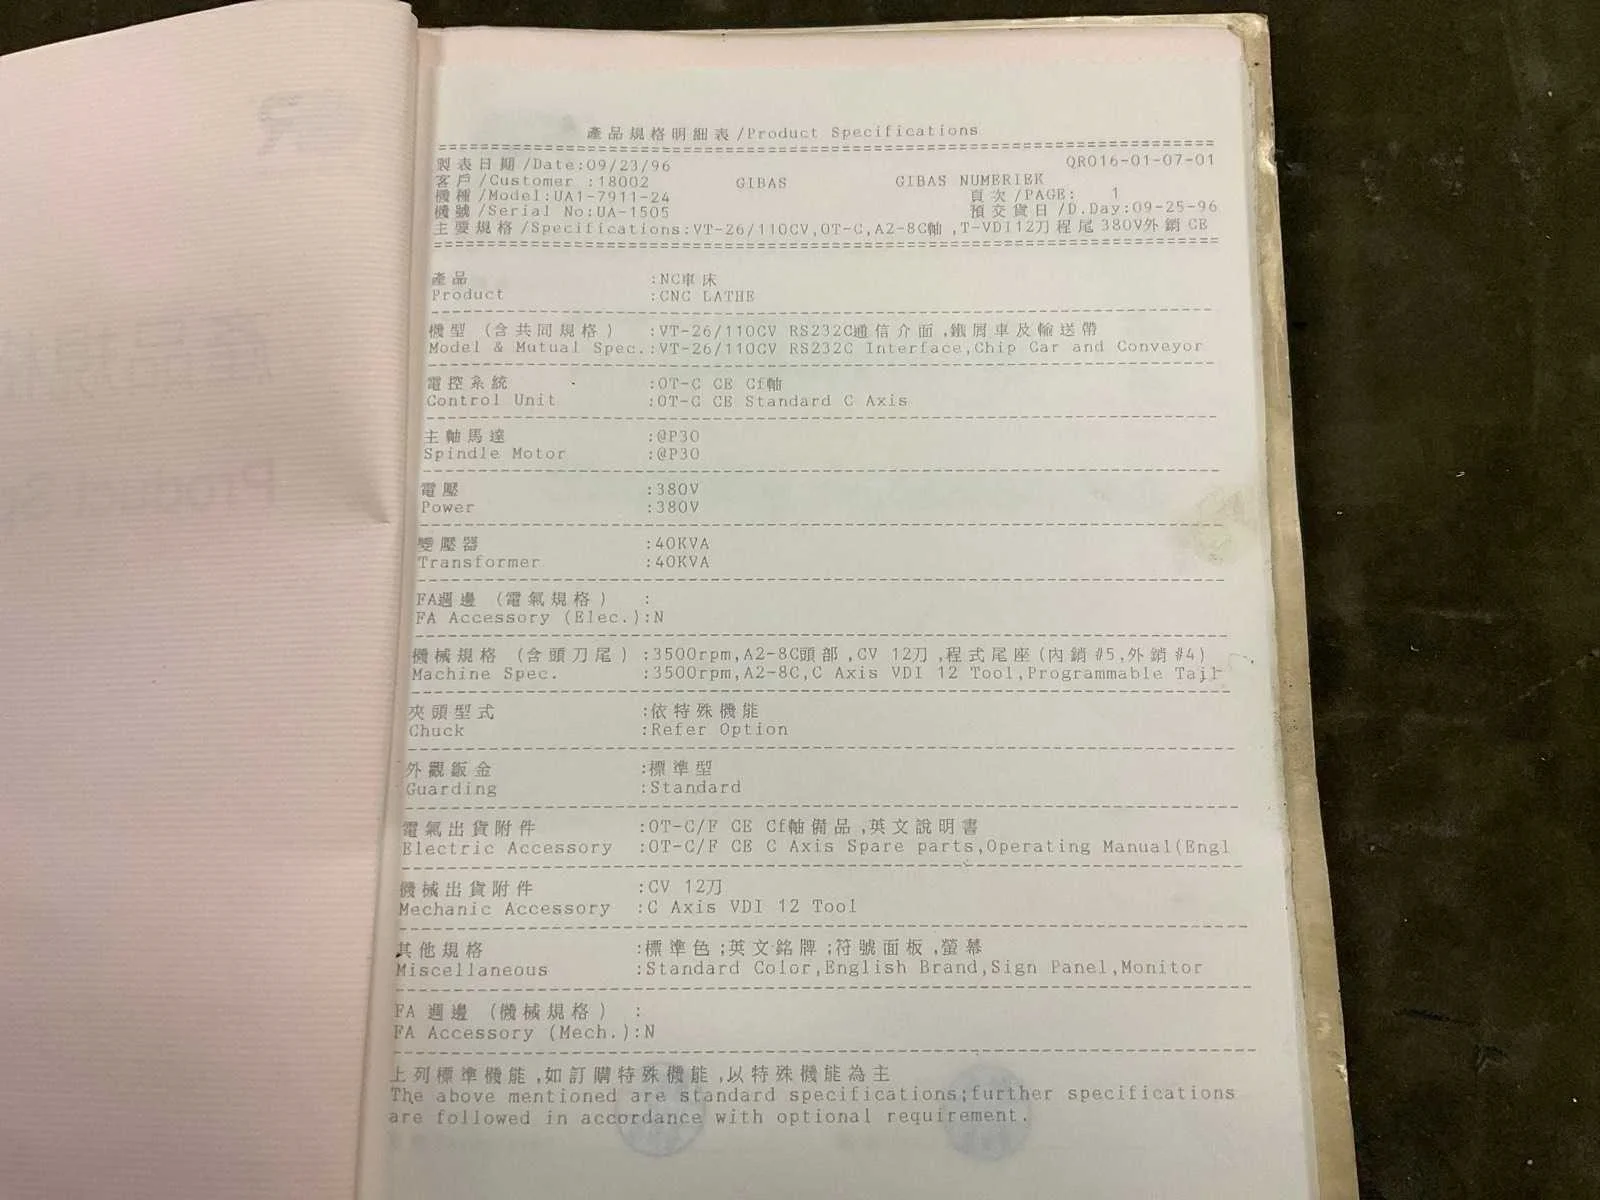 產品規格明細表/Product Specifications
製表日期/Date:09/23/96 QR016-01-07-01
客戶/Customer :18002 GIBAS GIBAS NUMERIEK
機種/Model:UA1-7911-24 頁次/PAGE: 1
機號/Serial No:UA-1505 預交貨日/D.Day:09-25-96
主要規格/Specifications:VT-26/110CV,OT-C,A2-8C軸,T-VDI12刀程尾380V外銷CE
產品 :NC車床
Product :CNC LATHE
機型 (含共同規格) :VT-26/110CV RS232C通信介面,鐵屑車及輸送帶
Model & Mutual Spec.:VT-26/110CV RS232C Interface,Chip Car and Conveyor
電控系統 :OT-C CE Cf軸
Control Unit :OT-C CE Standard C Axis
主軸馬達 :@P30
Spindle Motor :@P30
電壓 :380V
Power :380V
變壓器 :40KVA
Transformer :40KVA
FA週邊 (電氣規格) :
FA Accessory (Elec.):N
機械規格 (含頭刀尾) :3500rpm,A2-8C頭部,CV 12刀,程式尾座(內銷#5,外銷#4)
Machine Spec. :3500rpm,A2-8C,C Axis VDI 12 Tool,Programmable Tail
夾頭型式 :依特殊機能
Chuck :Refer Option
外觀鈑金 :標準型
Guarding :Standard
電氣出貨附件 :OT-C/F CE Cf軸備品,英文說明書
Electric Accessory :OT-C/F CE C Axis Spare parts,Operating Manual(Engl
機械出貨附件 :CV 12刀
Mechanic Accessory :C Axis VDI 12 Tool
其他規格 :標準色;英文銘牌;符號面板,螢幕
Miscellaneous :Standard Color,English Brand,Sign Panel,Monitor
FA 週邊 (機械規格) :
FA Accessory (Mech.):N
上列標準機能,如訂購特殊機能,以特殊機能為主
The above mentioned are standard specifications;further specifications
are followed in accordance with optional requirement.